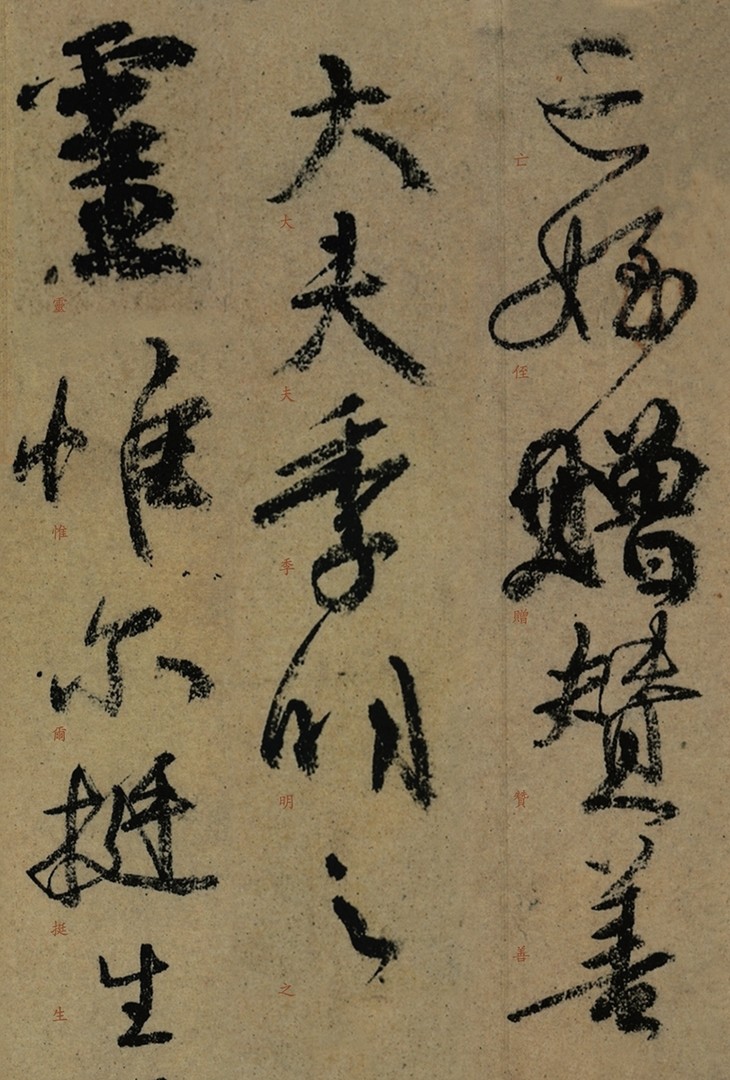 亡姪贈賛善
亡侄贈賛善
大夫季明之
大夫季明之
靈惟尔挺生
靈惟爾挺生